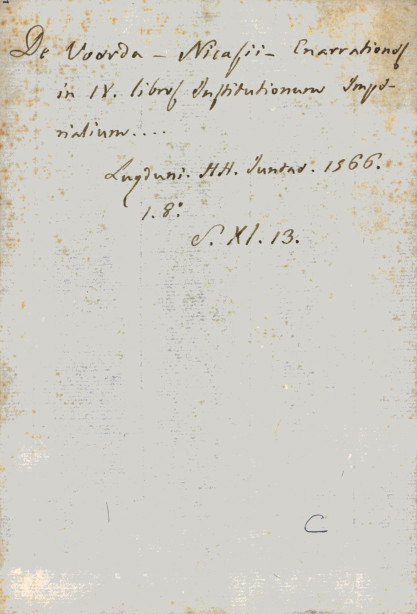 De Voorda - Nicasii - Enarrationes
in IV. libros Institutionum Impe-
rialium....
Lugduni. HH. Juntae. 1566.
1. 8°.
S. XI. 13.
C